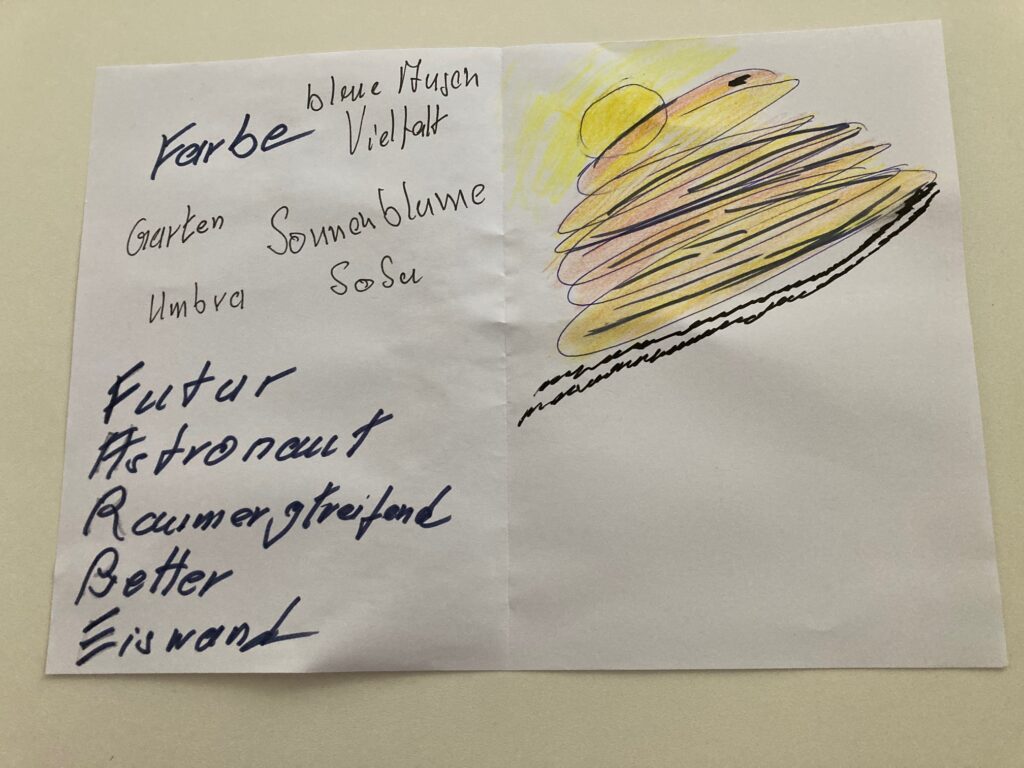 blaue Augen
Farbe Vielfalt
Garten Sonnenblume
Umbra SoSu
Futur
Astronaut
Raumergreifend
Better
Eiswand